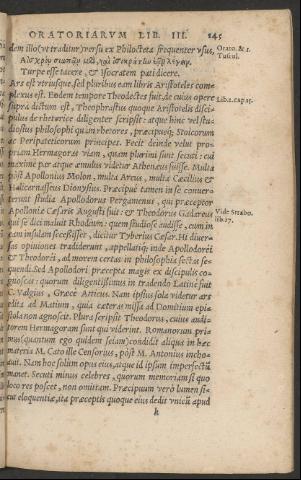 ORATORIARVM LIB. III. 245
dem illo (vt traditur) versu ex Philocteta frequenter vsus, Orato. & 1.
Αἰσχρὸν σιωπᾶν καὶ Ἰσοκράτην λέγειν. Tuscul.
Turpe esse tacere, & Isocratem pati dicere.
Ars est vtriusque, sed pluribus eam libris Aristoteles com-
plexus est. Eodem tempore Theodectes fuit, de cuius opere Lib. 2. cap. 15.
supra dictum est, Theophrastus quoque Aristotelis disci-
pulus de rhetorice diligenter scripsit: atque hinc vel stu-
diosius philosophi quàm rhetores, præcipuéq; Stoicorum
ac Peripateticorum principes. Fecit deinde velut pro-
priam Hermagoras viam, quam plurimi sunt secuti: cui
maximè par atque æmulus videtur Atheneus fuisse. Multa
pòst Apollonius Molon, multa Areus, multa Cæcilius &
Halicarnasseus Dionysius. Præcipuè tamen in se conuer-
terunt studia Apollodorus Pergamenus, qui præceptor
Apolloniæ Cæsaris Augusti fuit: & Theodorus Gadareus Vide Strabo.
qui se dici maluit Rhodium: quem studiosè audisse, cum in lib. 17.
eam insulam secessisset, dicitur Tyberius Cæsar. Hi diuer-
sas opiniones tradiderunt, appellatiq; inde Apollodorei
& Theodorei, ad morem certas in philosophia sectas se-
quendi. Sed Apollodori præcepta magis ex discipulis co-
gnoscas: quorum diligentissimus in tradendo Latinè fuit
C. Valgius, Græcè Atticus. Nam ipsius sola videtur ars
edita ad Matium, quia cæteras missa ad Domitium epi-
stola non agnoscit. Plura scripsit Theodorus, cuius audi-
torem Hermagoram sunt qui viderint. Romanorum pri-
mus (quantum ego quidem sciam) condidit aliqua in hæc
materia M. Cato ille Censorius, pòst M. Antonius incho-
auit. Nam hoc solum opus eius, atque id ipsum imperfectũ
manet. Secuti minus celebres, quorum memoriam si quo
loco res poscet, non omittam. Præcipuum verò lumen si-
cut eloquentiæ, ita præceptis quoque eius dedit vnicũ apud
h